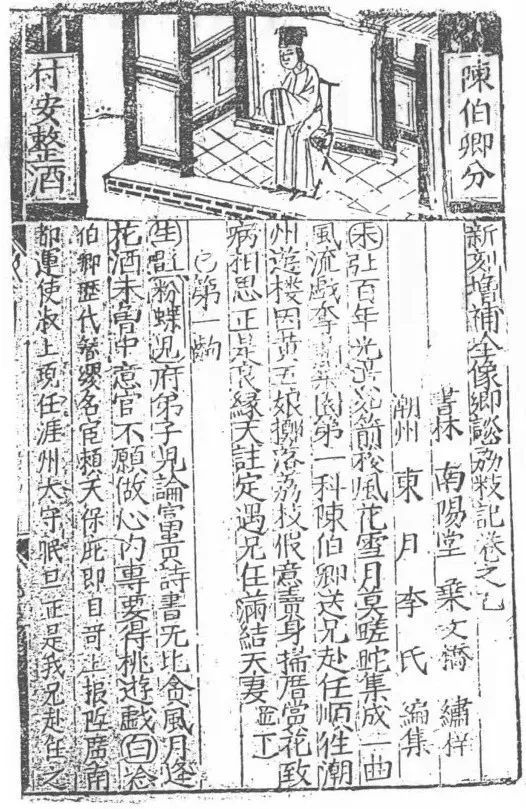 陳伯卿分
付安整酒
新刻增補全像鄉談荔枝記卷之乙
書林 南陽堂 葉文橋 繡梓
潮州 東月 李氏 編集
末引百年光景箭移風花雪月莫蹉跎集成一曲
風流戲園第一科陳伯卿送兄赴任順往潮
州遊樓因黃五娘擲落荔枝假意賣身揣厝當花致
病相思正是良緣天註定遇兄任滿結夫妻並下
第一齣
生唱粉蝶兒府第子兄論富貴詩書无比貪風月逢
花酒未曾中意官不願做心內專要得桃遊戲白念
伯卿歷代簪纓名宦賴天保庇即日哥上報改廣南
都運使淑上現任涯州太守眠旦正是我兄赴任之